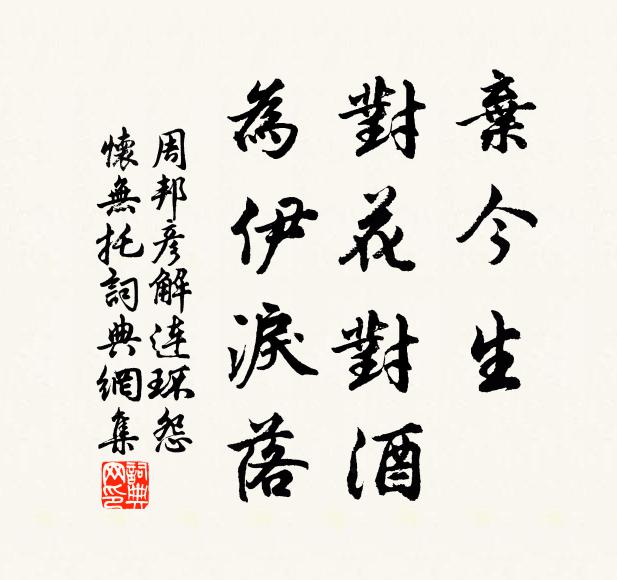 棄今生
對花對酒
為伊淚落
周邦彥解連环怨
懷無托詞典網集
詞典网印